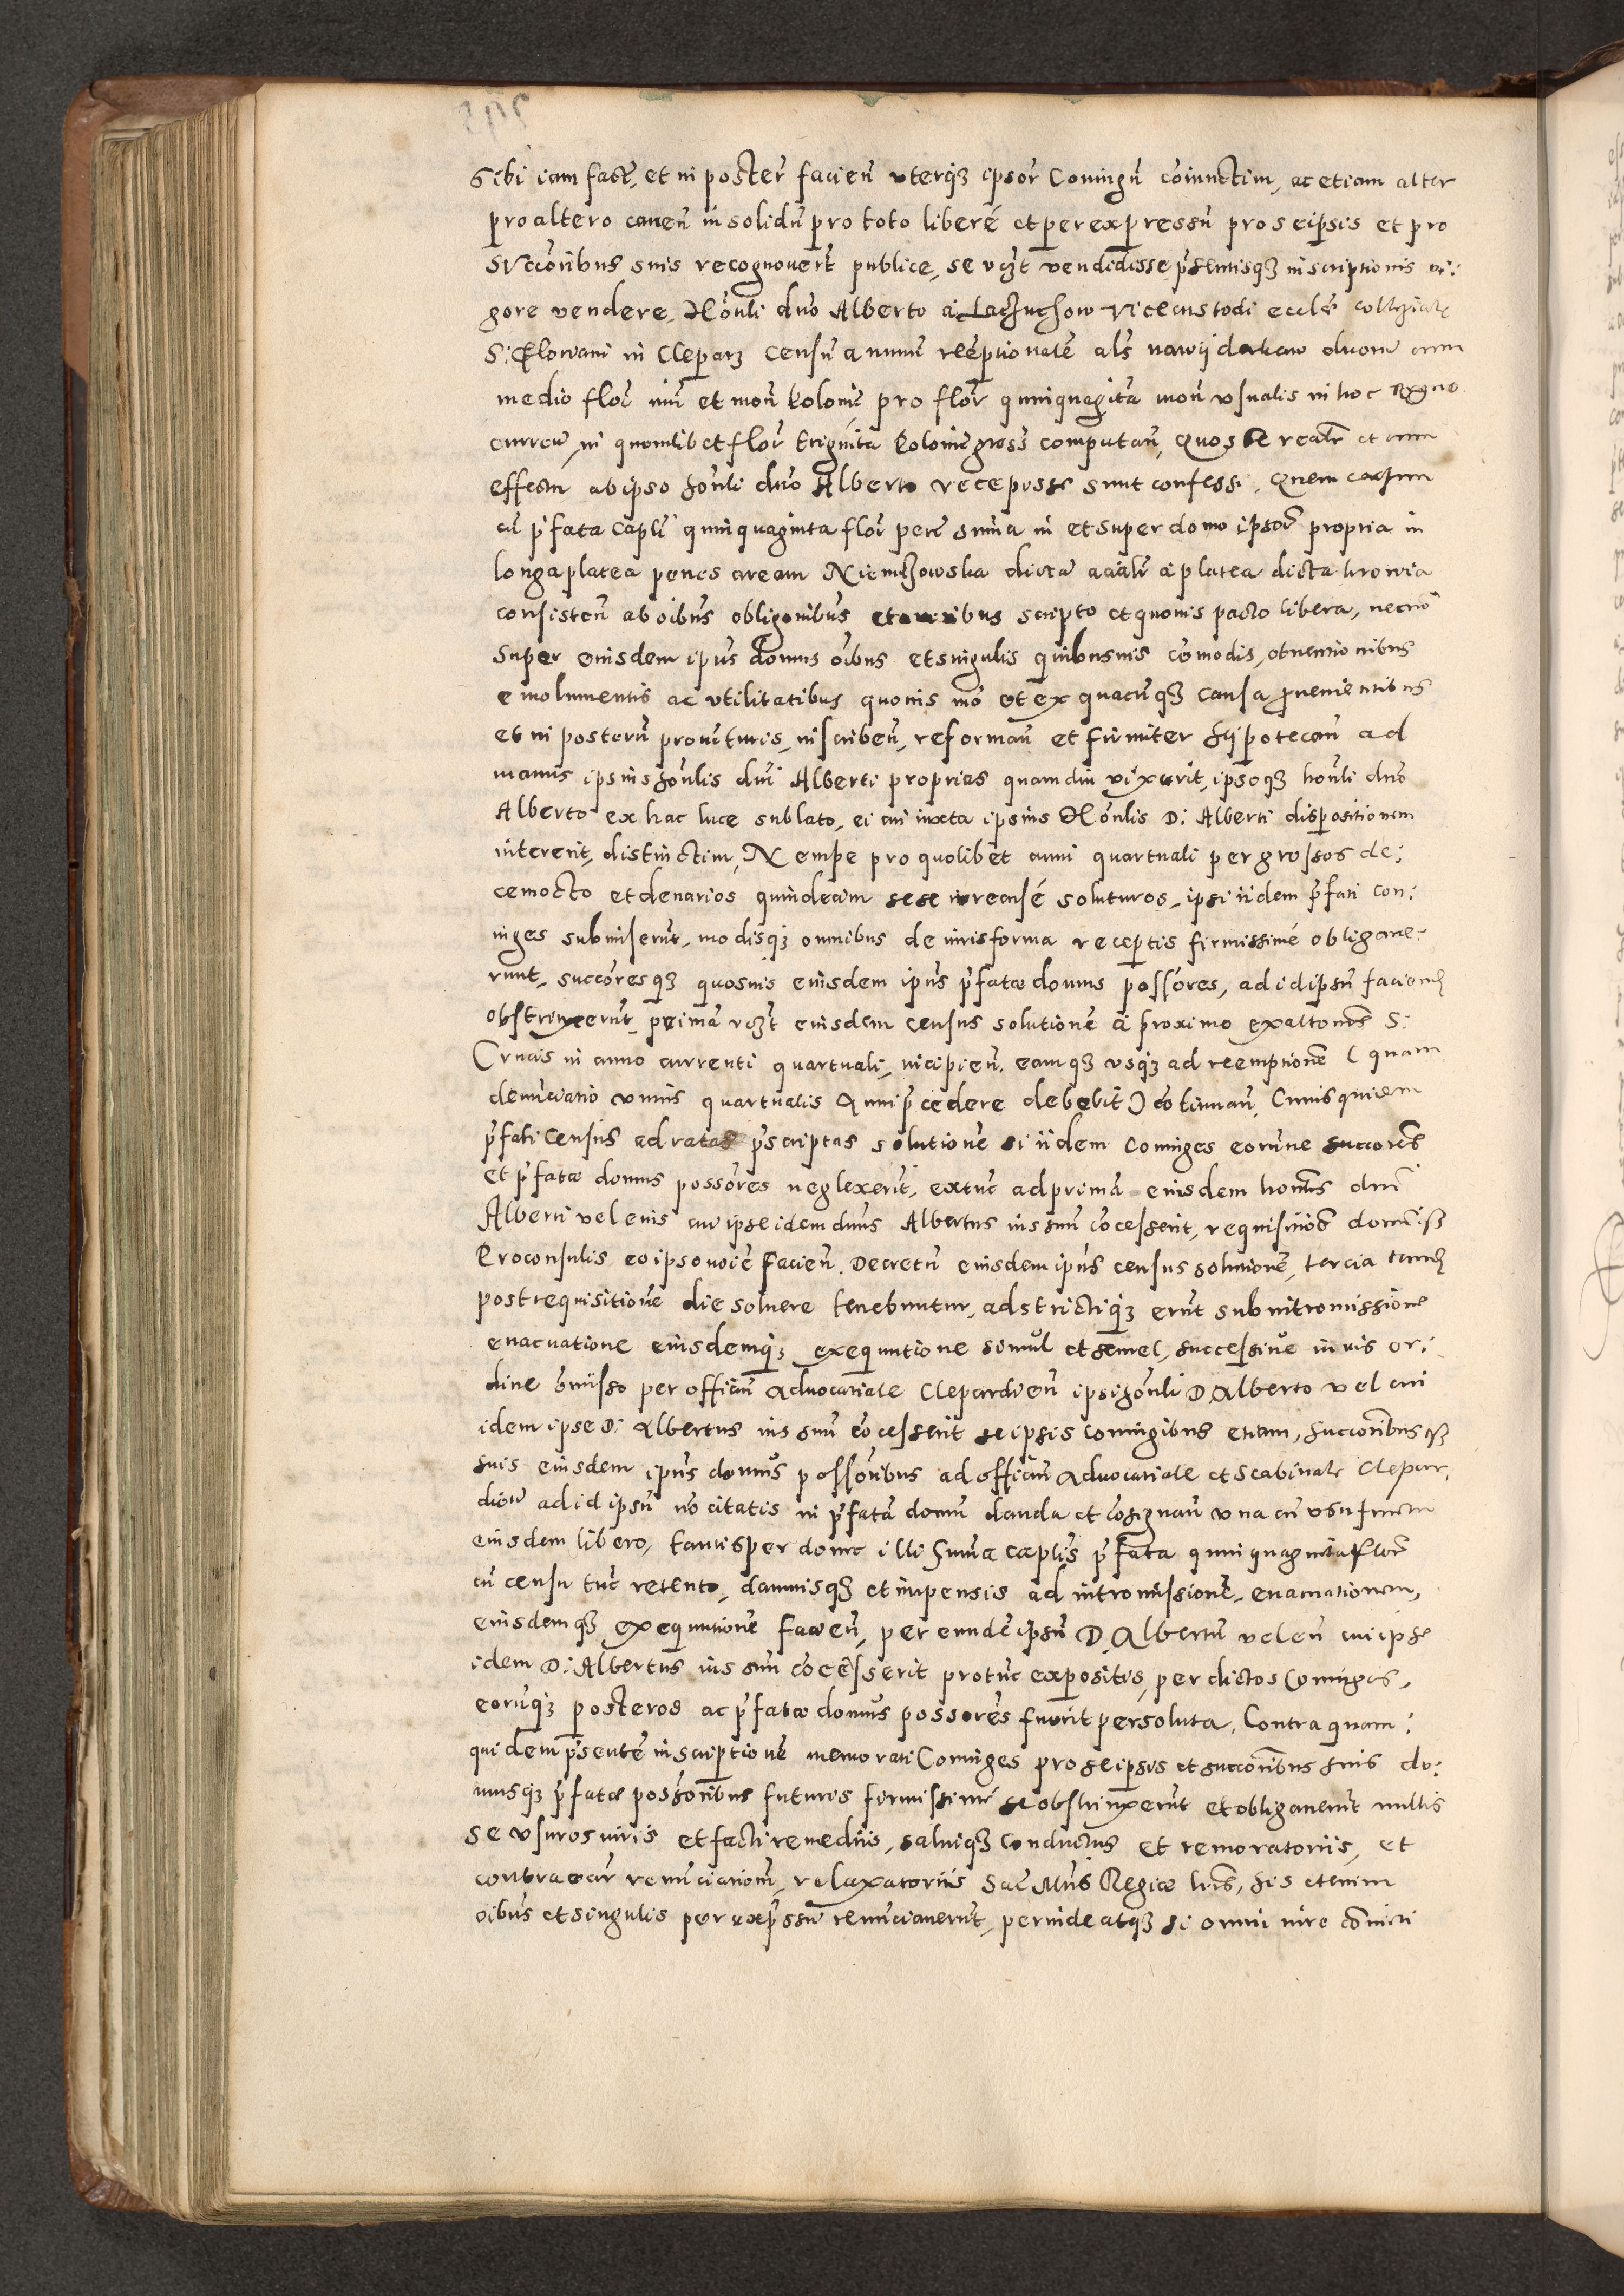 Sibi iam fact, et in posterũ facieñ vterqꝫ ipsor Coniugũ coniunctim, ac etiam alter
pro altero caueñ in solidũ pro toto liberé et per expressũ pro seipsis et pro
Succoribus suis recognouerũt publice, se vꝫt vendidisse pñtisqꝫ inscriptionis vi:
gore vendere, Honli dno Alberto à Lachuchow Vicecustodi eccłe collegiate
S: Floriani in Cleparꝫ Censũ annuũ reemptionalẽ als nawÿderkaw duorũ cum
medio flor nũi et moñ Poloniẽ pro flor quinquagita moñ vsualis in hoc Regno
curreñ, in quemlibet flor triginta Poloniẽ gross computañ, Quos se realr et cum
effectu ab ipso honli dno Alberto recepisse sunt confessi. Quem censum
cũ pfata Capli quinquaginta flor peć suma in et super domo ipsor propria in
longa platea penes aream Niemczowska dicta à platea dicta krowia
consisteñ ab oibus obligonibus et oneribus scripto et quouis pacto libera, necnõ
super eiusdem ipius domus oibus et singulis quibusuis cõmodis, obuentionibus
emolumentis ac vtilitatibus quouis mõ et ex quacũqꝫ causa prouenientibus
et in posterũ prouẽturis, inscribeñ, reformañ et firmiter hÿpotecañ ad
manus ipsius honlis dni Alberti proprias quamdiu vixerit, ipsoqꝫ honli dno
Alberto ex hac luce sublato, ei cui iuxta ipsius Honlis D: Alberti dispositionem
intererit, distinctim, Nempe pro quolibet anni quartuali per grossos de:
cemocto et denarios quindecim sese soluturos, ipsi iidem pfati con:
iuges submiserũt, modisqꝫ omnibus de iuris forma receptis firmissimé obligaue:
runt, succoresqꝫ quosuis eiusdem ipius pfatæ domus possores, ad idipsũ facieñ
obstrinxerũt primã vꝫt eiusdem census solutionẽ à proximo exaltonis S:
Crucis in anno currenti quartuali, incipieñ. eamqꝫ vsqꝫ ad reemptionẽ (quam
denũciatio vnius quartualis Anni pcedere debebit) cõtinuañ, Cuiusquidem
pfati Census ad ratas pscriptas solutionẽ si iidem Coniuges eorũue succores
et pfatæ domus possores neglexerĩt, extũc ad primã eiusdem honlis dni
Alberti vel eius cui ipse idem dñus Albertus ius suũ cõcesserit, requisitionẽ
Proconsulis eo ipso facieñ. Decretũ eiusdem ipius census solutionẽ, tercia
post requisitionẽ die soluere tenebuntur, adstrictiqꝫ erũt sub intromissione
euacuatione eiusdemqꝫ exequutione simul et semel, successiue iuris or:
dine omisso per officiũ Aduocatiale Clepardieñ ipsi honli D. Alberto vel cui
idem ipse D: Albertus ius suũ cõcesserit se ipsis coniugibus etiam, succoribusqꝫ
suis eiusdem ipius domus possoribus ad officiũ Aduocatiale et Scabinale Clepar:
dieñ ad id ipsũ nõ citatis in pfatã domũ danda et cõsignañ vna cũ vsufructu
eiusdem libero, tantisper donec illi suma caplis pfata quinquaginta flor
cũ censu tũc retento, damnisqꝫ et impensis ad intromissionẽ, euacuationem,
eiusdemqꝫ exequutionẽ facieñ, per eundẽ ipsũ D. Albertũ vel eũ cui ipse
idem D: Albertus ius suũ cõcesserit protũc expositis, per dictos Coniuges,
eorũqꝫ posteros ac pfatæ domus possores fuerit persoluta. Contra quam:
quidem psentẽ inscriptionẽ memorati Coniuges pro seipsis et succoribus suis do:
musqꝫ pfatæ possoribus futuris firmissimé se obstrinxerũt et obligauerũt nullis
se vsuros iuris et facti remediis, saluiqꝫ conductus et remoratoriis, et
contra earũ renũciationũ, relaxatoriis Sac Mtis Regiæ lris, his etenim
oibus et singulis per expssũ renũciauerũt, perinde atqꝫ si omni iure cõuicti